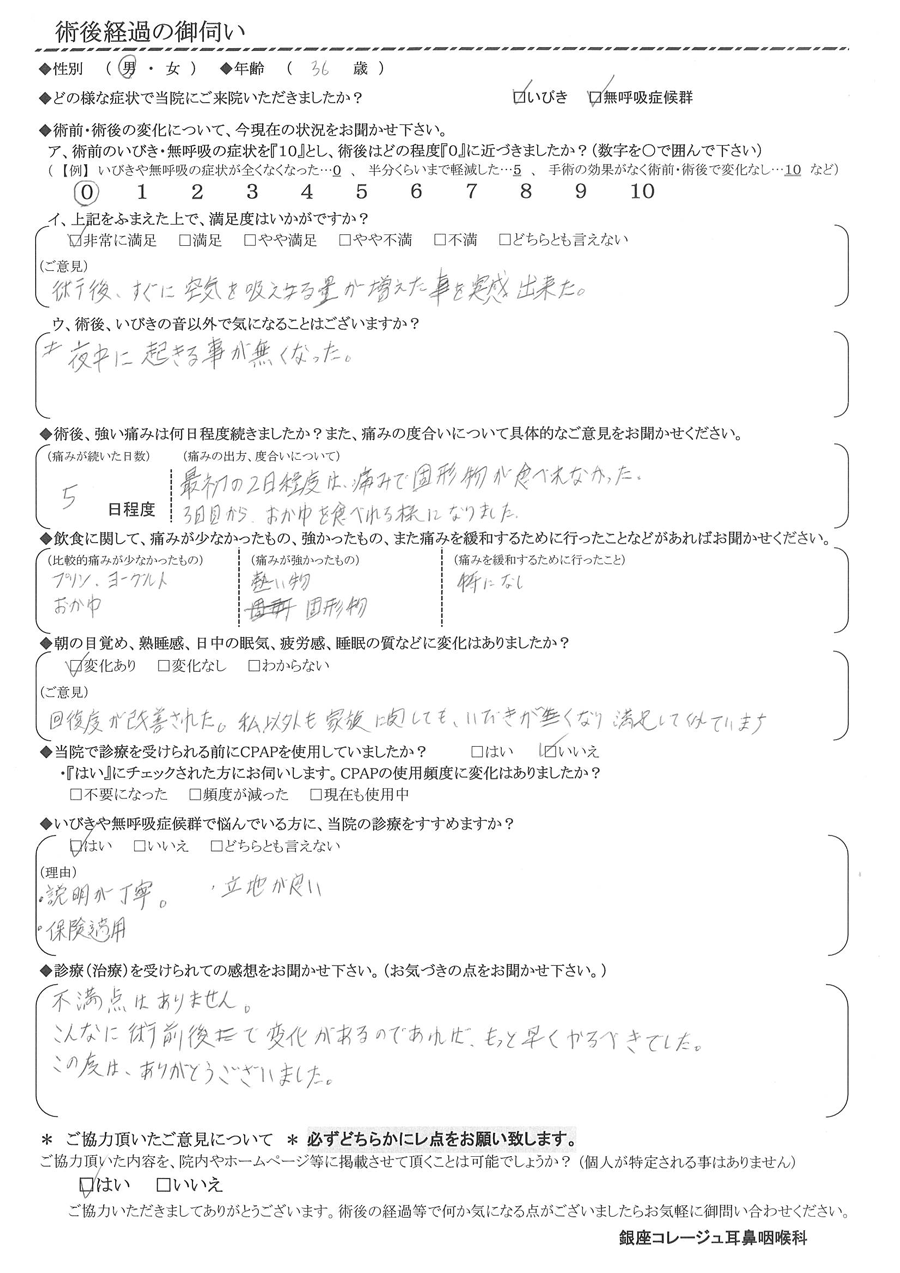 術後経過の御伺い
◆性別 （ 男 ・ 女 ） ◆年齢 （ 36 歳 ）
◆どの様な症状で当院にご来院いただきましたか？ ☑いびき ☑無呼吸症候群
◆術前・術後の変化について、今現在の状況をお聞かせ下さい。
ア、術前のいびき・無呼吸の症状を『10』とし、術後はどの程度『0』に近づきましたか？（数字を〇で囲んで下さい）
（【例】 いびきや無呼吸の症状が全くなくなった…0 、 半分くらいまで軽減した…5 、 手術の効果がなく術前・術後で変化なし…10 など）
0 1 2 3 4 5 6 7 8 9 10
イ、上記をふまえた上で、満足度はいかがですか？
☑非常に満足 □満足 □やや満足 □やや不満 □不満 □どちらとも言えない
（ご意見）
術後、すぐに空気を吸える量が増えた事を実感出来た。
ウ、術後、いびきの音以外で気になることはございますか？
夜中に起きる事が無くなった。
◆術後、強い痛みは何日程度続きましたか？また、痛みの度合いについて具体的なご意見をお聞かせください。
（痛みが続いた日数） （痛みの出方、度合いについて）
最初の2日程度は、痛みで固形物が食べれなかった。
5 日程度
3日目から、おかゆを食べれる様になりました。
◆飲食に関して、痛みが少なかったもの、強かったもの、また痛みを緩和するために行ったことなどがあればお聞かせください。
（比較的痛みが少なかったもの） （痛みが強かったもの） （痛みを緩和するために行ったこと）
プリン、ヨーグルト 熱い物 特になし
おかゆ 固形物
◆朝の目覚め、熟睡感、日中の眠気、疲労感、睡眠の質などに変化はありましたか？
☑変化あり □変化なし □わからない
（ご意見）
回復度が改善された。私以外も家族に関しても、いびきが無くなり満足して
◆当院で診療を受けられる前にCPAPを使用していましたか？ □はい ☑いいえ
・『はい』にチェックされた方にお伺いします。CPAPの使用頻度に変化はありましたか？
□不要になった □頻度が減った □現在も使用中
◆いびきや無呼吸症候群で悩んでいる方に、当院の診療をすすめますか？
☑はい □いいえ □どちらとも言えない
（理由）
・説明が丁寧。 ・立地が良い
・保険適用
◆診療（治療）を受けられての感想をお聞かせ下さい。（お気づきの点をお聞かせ下さい。）
不満点はありません。
こんなに術前後で変化があるのであれば、もっと早くやるべきでした。
この度は、ありがとうございました。
＊ ご協力頂いたご意見について ＊ 必ずどちらかにレ点をお願い致します。
ご協力頂いた内容を、院内やホームページ等に掲載させて頂くことは可能でしょうか？（個人が特定される事はありません）
☑はい □いいえ
ご協力いただきましてありがとうございます。術後の経過等で何か気になる点がございましたらお気軽に御問い合わせください。
銀座コレージュ耳鼻咽喉科